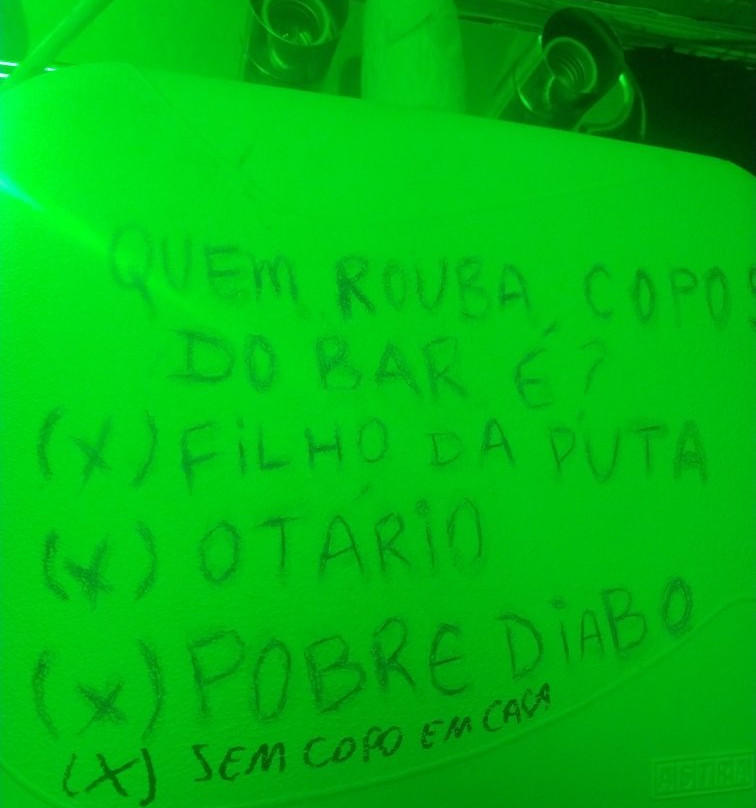 QUEM ROUBA COPOS
DO BAR É?
(X) FILHO DA PUTA
(X) OTÁRIO
(X) POBRE DIABO
(X) SEM COPO EM CASA
ASTRA